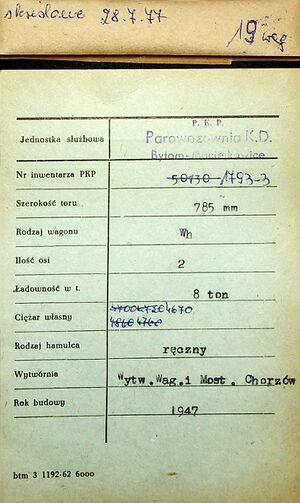 skreślono 28.7.77
19 wąg
P. K. P.
Jednostka służbowa Parowozownia K.D.
Bytom-Maciejkowice
Nr inwentarza PKP 50130 1793-3
Szerokość toru 785 mm
Rodzaj wagonu Wh
Ilość osi 2
Ładowność w t. 8 ton
Ciężar własny 4720 4670
4860 4760
Rodzaj hamulca ręczny
Wytwórnia Wytw.Wag.i Most. Chorzów
Rok budowy 1947
btm 3 1192-62 6000